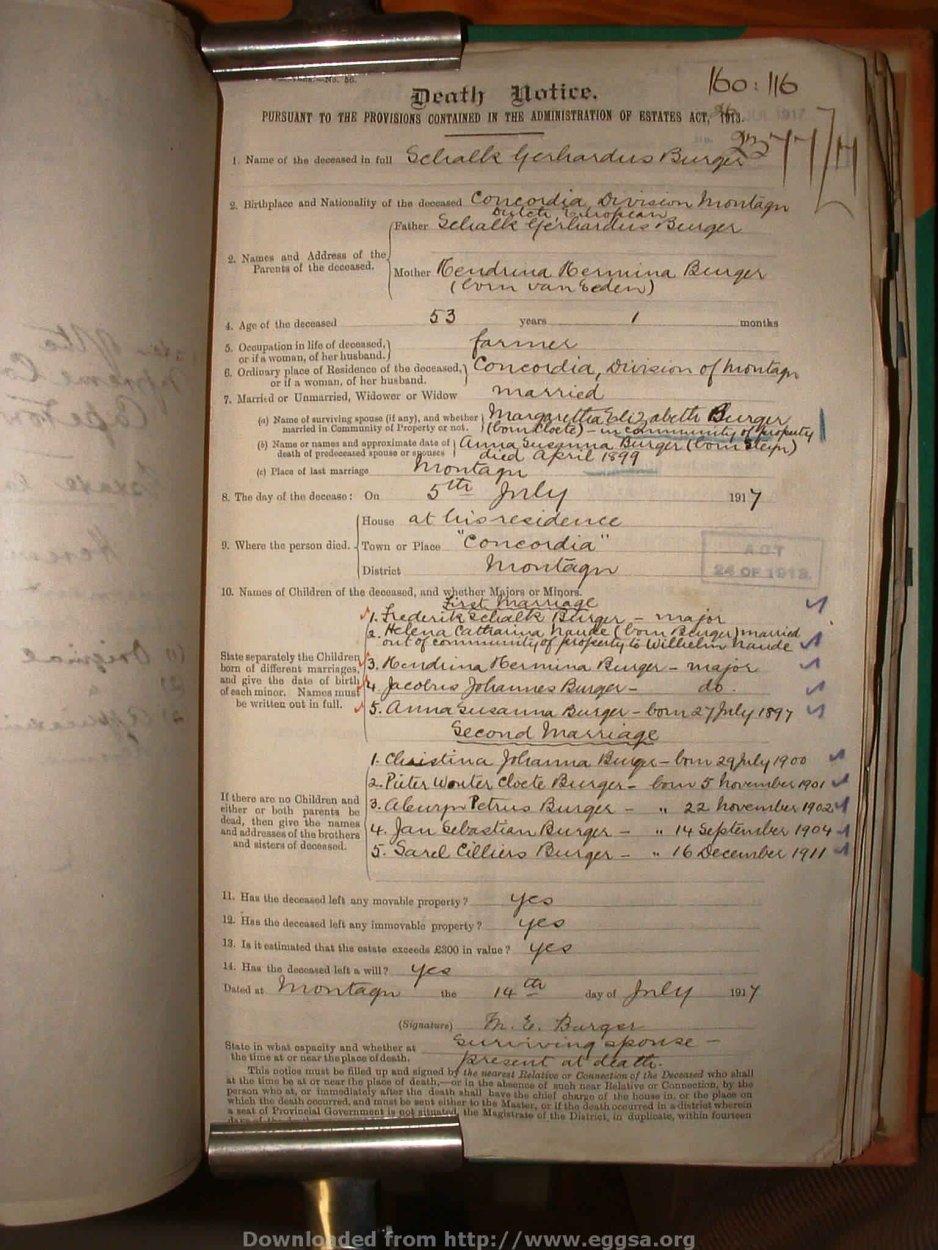 No. 56.
160:116
Death Notice.
PURSUANT TO THE PROVISIONS CONTAINED IN THE ADMINISTRATION OF ESTATES ACT, 1913.
1917
2377/17
1. Name of the deceased in full Schalk Gerhardus Burger
2. Birthplace and Nationality of the deceased Concordia, Division Montagu
Dutch, European
Father Schalk Gerhardus Burger
2. Names and Address of the Parents of the deceased.
Mother Hendrina Hermina Burger
(born van Eeden)
4. Age of the deceased 53 years 1 months
5. Occupation in life of deceased, or if a woman, of her husband. farmer
6. Ordinary place of Residence of the deceased, or if a woman, of her husband. Concordia, Division of Montagu
7. Married or Unmarried, Widower or Widow married
(a) Name of surviving spouse (if any), and whether married in Community of Property or not. Margaretha Elizabeth Burger
(born Cloete) - in community of property
(b) Name or names and approximate date of death of predeceased spouse or spouses Anna Susanna Burger (born Steyn)
died April 1899
(c) Place of last marriage Montagu
8. The day of the decease: On 5th July 1917
House at his residence
9. Where the person died. Town or Place "Concordia"
District Montagu
ACT
24 OF 1913.
10. Names of Children of the deceased, and whether Majors or Minors.
First Marriage
1. Frederik Schalk Burger - major
2. Helena Catharina Naude (born Burger) married
out of community of property to Wilhelm Naude
State separately the Children born of different marriages, and give the date of birth of each minor. Names must be written out in full.
3. Hendrina Hermina Burger - major
4. Jacobus Johannes Burger - do.
5. Anna Susanna Burger - born 27 July 1897
Second Marriage
1. Christina Johanna Burger - born 29 July 1900
2. Pieter Wouter Cloete Burger - born 5 November 1901
If there are no Children and either or both parents be dead, then give the names and addresses of the brothers and sisters of deceased.
3. Alewyn Petrus Burger - " 22 November 1902
4. Jan Sebastian Burger - " 14 September 1904
5. Sarel Cilliers Burger - " 16 December 1911
11. Has the deceased left any movable property? yes
12. Has the deceased left any immovable property? yes
13. Is it estimated that the estate exceeds £300 in value? yes
14. Has the deceased left a will? yes
Dated at Montagu the 14th day of July 1917
(Signature) M. E. Burger
State in what capacity and whether at the time at or near the place of death. Surviving spouse -
present at death.
This notice must be filled up and signed by the nearest Relative or Connection of the Deceased who shall
at the time be at or near the place of death,—or in the absence of such near Relative or Connection, by the
person who at, or immediately after the death shall have the chief charge of the house in, or the place on
which the death occurred, and must be sent either to the Master, or if the death occurred in a district wherein
a seat of Provincial Government is not situated, the Magistrate of the District, in duplicate, within fourteen
Downloaded from http://www.eggsa.org